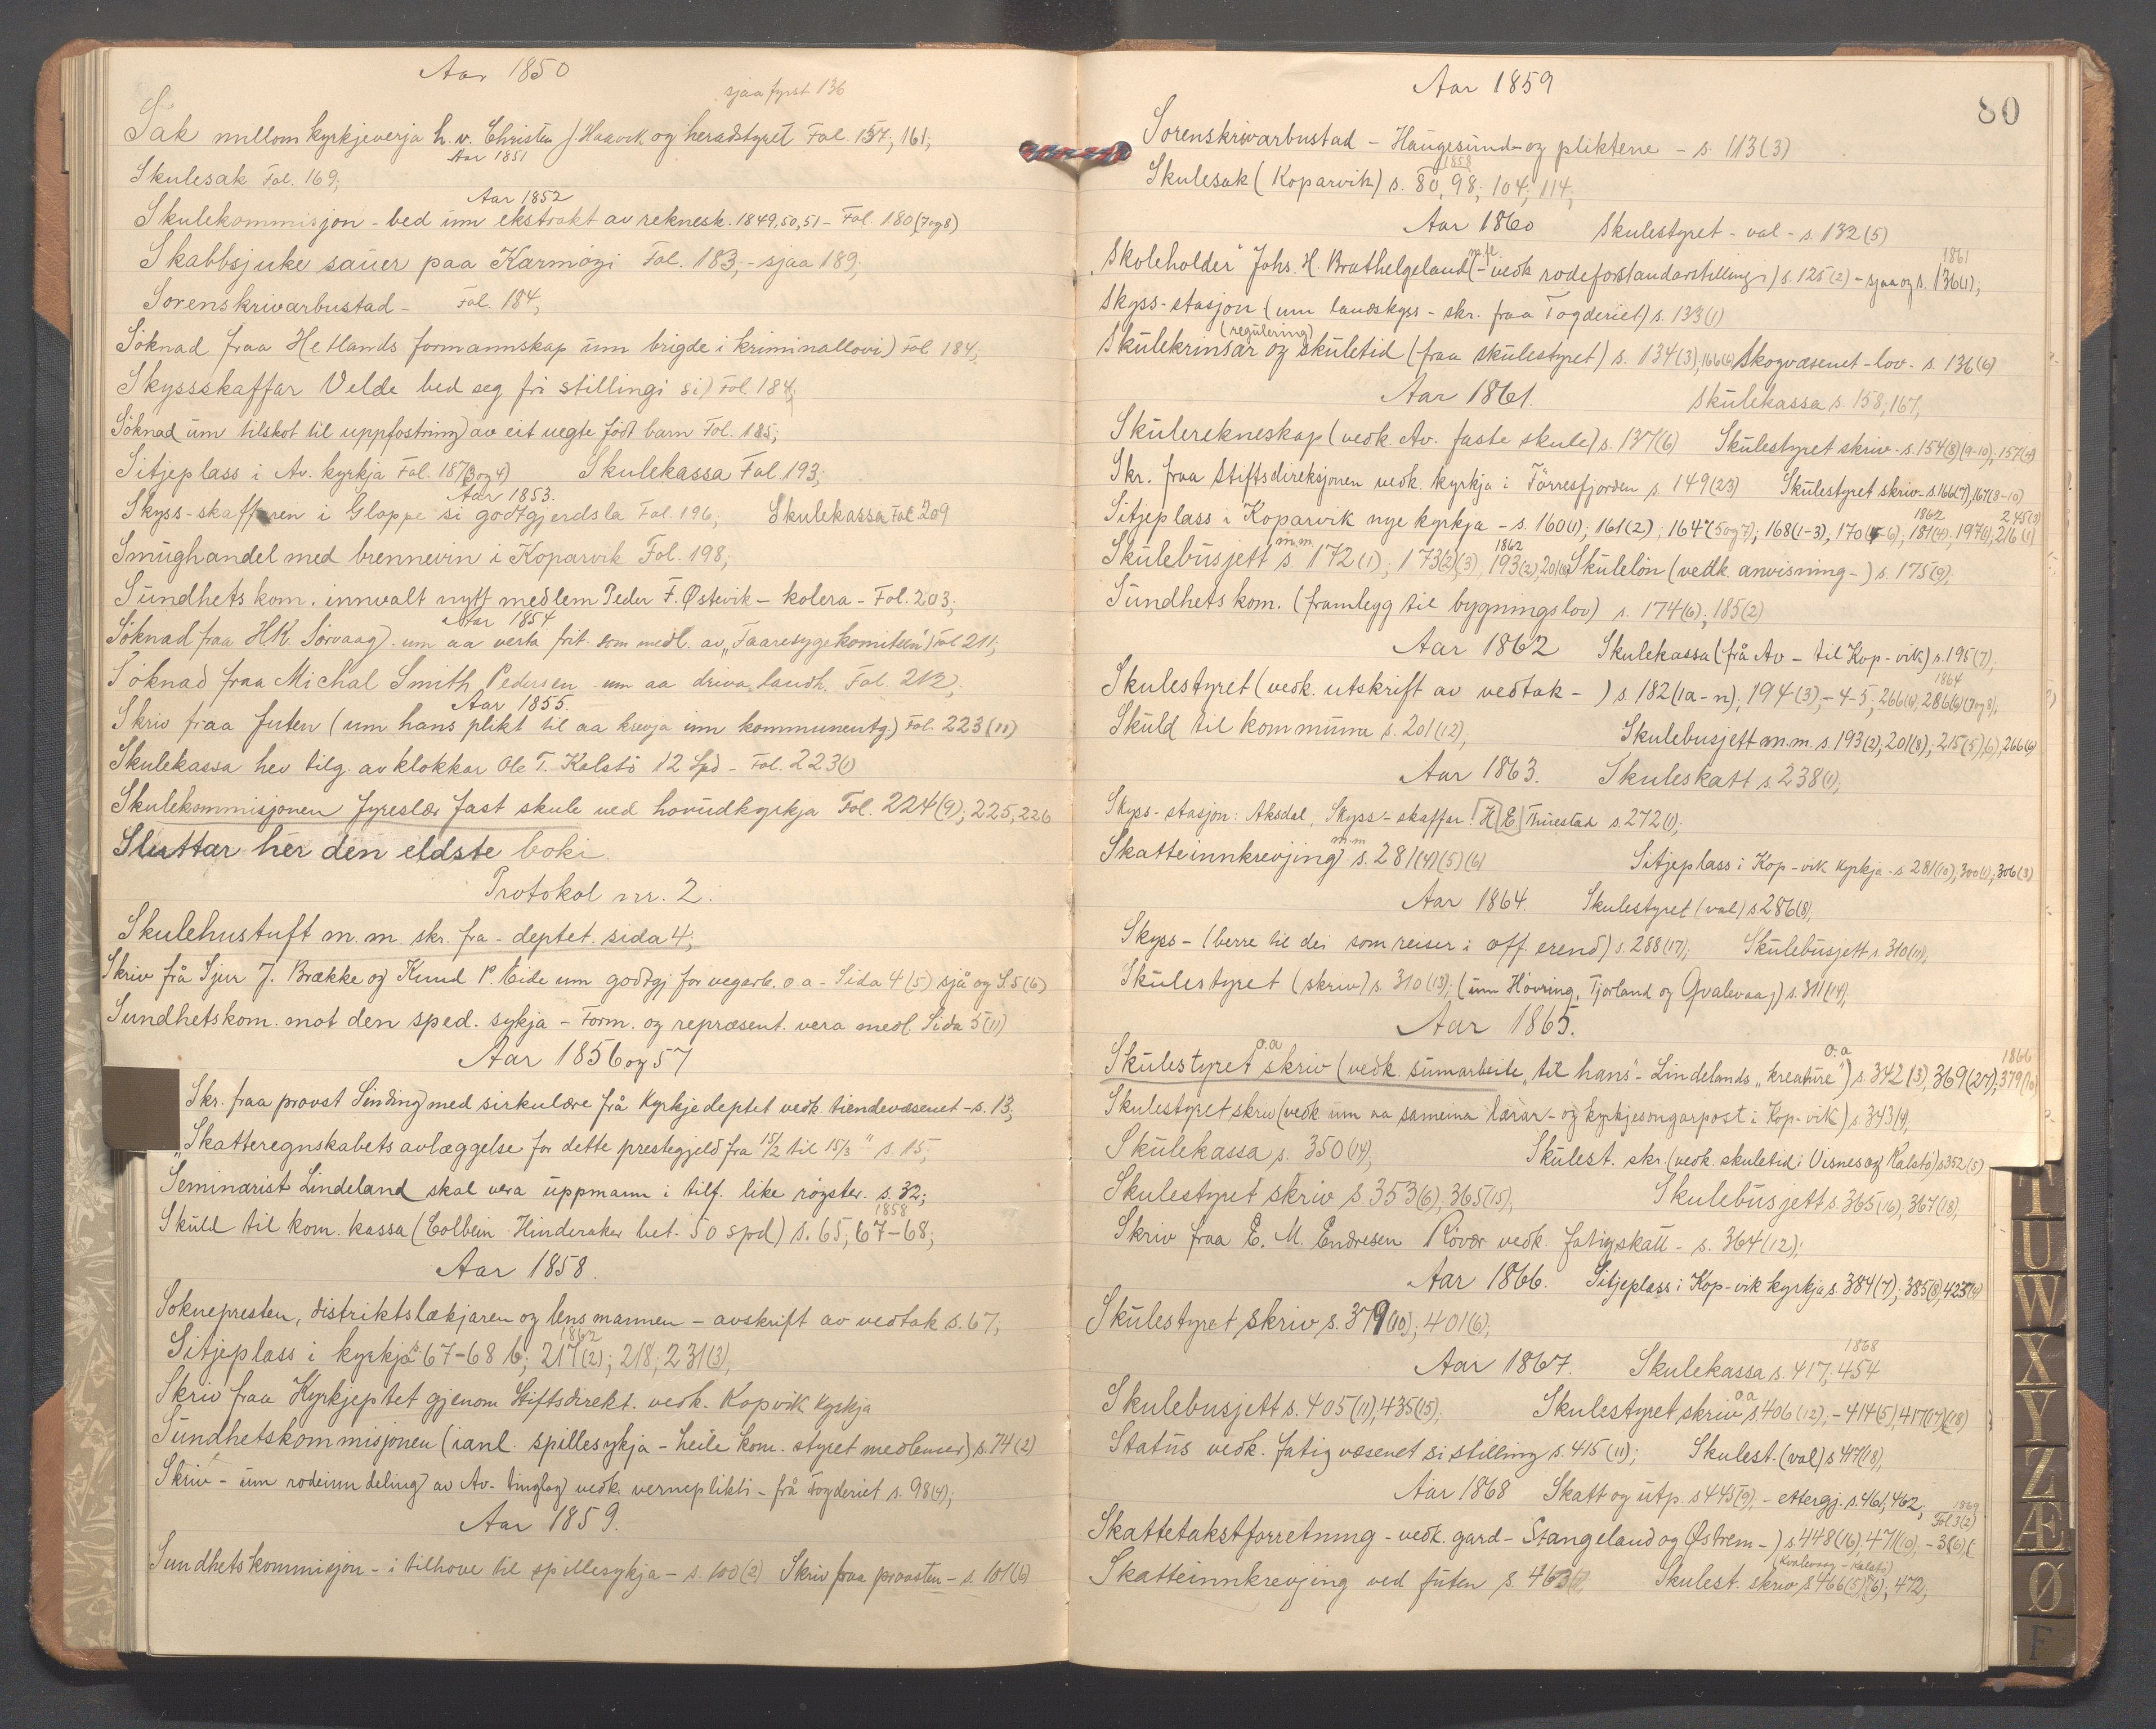 Aar 1850
sjaa fyrst 136
Sak millom kyrkjeverja h. v. Christen J. Haavik og heradstyret Fol. 157; 161;
Aar 1851
Skulesak Fol. 169;
Aar 1852
Skulekommisjon - bed um ekstrakt av reknesk. 1849,50,51 - Fol. 180 (7og8)
Skabbsjuke sauer paa Karmøyi Fol. 183; - sjaa 189;
Sorenskrivarbustad - Fol. 184;
Söknad fraa Hetlands formannskap um brigde i kriminallovi) Fol 184;
Skyssskaffar Velde bed seg fri stillingi si) Fol. 184;
Söknad um tilskot til uppfostring) av eit uegte født barn Fol. 185;
Sitjeplass i Av. kyrkja Fol. 187(3og4) Skulekassa Fol. 193;
Aar 1853.
Skyss-skaffaren i Gloppe si godtgjerdsla Fol. 196; Skulekassa Fol. 209
Smughandel med brennevin i Koparvik Fol. 198;
Sundhetskom. innvalt nytt medlem Peder F. Østevik - kolera - Fol. 203;
Aar 1854
Söknad fraa H.K. Sörvaag). um aa verta frit som medl. av "Faaresygekomiteen") Fol 211;
Söknad fraa Michal Smith Pedersen um aa driva landh. Fol. 212;
Aar 1855.
Skriv fraa futen (um hans plikt til aa krevja inn kommuneutg.) Fol. 223(11)
Skulekassa hev tilg. av klokkar Ole T. Kalstö 12 Spd - Fol. 223(1)
Skulekommisjonen fyreslær fast skule ved hovudkyrkja Fol. 224(9), 225, 226
Sluttar her den eldste boki.
Protokol nr. 2.
Skulehustuft m.m. skr. fra - deptet. sida 4;
Skriv frå Sjur J. Brække og Knud P. Eide um godtgj for vegarb. o.a - Sida 4 (5) sjå og S5(6)
Sundhetskom. mot den sped. sykja - Form. og repræsent. vera medl. Sida 5(11)
Aar 1856 og 57
Skr. fraa provst Sinding) med sirkulære frå Kyrkjedeptet vedk. tiendevæsenet - s. 13;
"Skatteregnskabets avlæggelse for dette prestegjeld fra 15/2 til 15/3" s. 15;
Seminarist Lindeland skal vera uppmann i tilf. like røyster. s. 32;
1858
Skuld til kom. kassa (Colbein Hinderaker bet. 50 spd) s. 65; 67-68;
Aar 1858.
Soknepresten, distriktslækjaren og lensmannen - avskrift av vedtak s. 67;
1862
Sitjeplass i kyrkja s. 67-68 b; 217(2); 218; 231(3),
Skriv fraa Kyrkjeptet gjenom Stiftsdirekt. vedk. Kopvik kyrkja
Sundhetskommisjonen (ianl. spillesykja - heile kom. styret medlemer) s. 74 (2)
Skriv - um rodeinndeling) av Av- tinglag vedk. verneplikti - frå Fogderiet s. 98(4);
Aar 1859.
Sundhetskommisjon - i tilhove til spillesykja - s. 100(2) Skriv fraa proosten - s. 101(6)
80
Aar 1859
Sorenskrivarbustad - Haugesund - og pliktene - s. 113(3)
1858
Skulesak (Koparvik) s. 80, 98; 104; 114;
Aar 1860 Skulestyret - val - s. 132(5)
m.fl. 1861
"Skoleholder" Johs. H. Brathelgeland (- vedk rodeforstandarstillingi) s. 125(2) - sjaa og s. 136(1);
Skyss-stasjon (um landskyss - skr. fraa Fogderiet) s. 133(1)
(regulering)
Skulekrinsar og skuletid (fraa skulestyret) s. 134(3); 166(6) Skogvæsenet - lov - s. 136(6)
Aar 1861. Skulekassa s. 158; 167;
Skulerekneskap (vedk. Av. faste skule) s. 137(6) Skulestyret skriv - s. 154(8)(9-10); 157(4)
Skr. fraa Stiftsdireksjonen vedk. kyrkja i Förresfjorden s. 149(23) Skulestyret skriv - s. 166(7), 167(8-10)
1862 245(3)
Sitjeplass i Koparvik nye kyrkja - s. 160(1); 161(2); 164(5og7); 168(1-3), 170(5-6); 181(4), 197(1), 216(1)
m.m. 1862
Skulebusjett s. 172(1); 173(2)(3), 193(2), 201(8) Skulelön (vedk. anvisning-) s. 175(9);
Sundhetskom. (framlegg til bygningslov) s. 174(6); 185(2)
Aar 1862 Skulekassa (frå Av - til Kop-vik) s. 195(7),
1864
Skulestyret (vedk. utskrift av vedtak - ) s. 182(1a-n); 194(3), -4-5; 266(6), 286(6)(7og8),
Skuld til kommuna s. 201(12); Skulebusjett m.m. s. 193(2); 201(8); 215(5)(6), 266(6)
Aar 1863. Skuleskatt s. 238(1);
Skyss-stasjon: Aksdal, Skyss-skaffar. H E Truestad s. 272(1);
m.m
Skatteinnkrevjing) s. 281(4)(5)(6) Sitjeplass i Kop-vik kyrkja - s 281(10); 300(1); 306(3)
Aar 1864. Skulestyret (val) s 286(8),
Skyss - (berre til dei som reiser i off. erend) s. 288(17); Skulebusjett s 310(11),
Skulestyret (skriv) s 310(13); (um Hövring, Tjorland og Qvalevaag) s. 311(14),
Aar 1865.
o.a o.a 1866
Skulestyret skriv (vedk. sumarbeite "til hans" - Lindelands "kreature") s. 342(3), 369(27); 379(10)
Skulestyret skriv (vedk um aa sameina lærar- og kyrkjesongarpost i Kop-vik) s. 343(9),
Skulekassa s. 350(14), Skulest. skr. (vedk. skuletid i Visnes og Kalstö) s 352(5)
Skulestyret skriv s. 353(6), 365(15), Skulebusjett s. 365(16), 367(18),
Skriv fraa E. M. Endresen Rövær vedk. fatigskatt - s. 364(12);
Aar 1866. Sitjeplass i Kop-vik kyrkja s. 384(7); 385(8), 423(4)
Skulestyret skriv s. 379(10); 401(6);
1868
Aar 1867. Skulekassa s. 417; 454
o a
Skulebusjett s. 405(11), 435(15), Skulestyret skriv s. 406(12), - 414(5), 417(17)(18)
Status vedk. fatigvæsenet si stilling s. 415(11); Skulest. (val) s 417(18),
Aar 1868 Skatt og utp. s 445(9), - ettergj. s. 461, 462,
1869 Fol 3(2)
Skattetakstforretning - vedk. gard - Stangeland og Østrem -) s 448(16), 471(10), - 3(6)(
(Kvalevaag - Kalstö)
Skatteinnkrevjing ved futen s. 463 Skulest. skriv s 466(5)(6); 472,
T
U
W
X
Y
Z
Æ
Ø
F